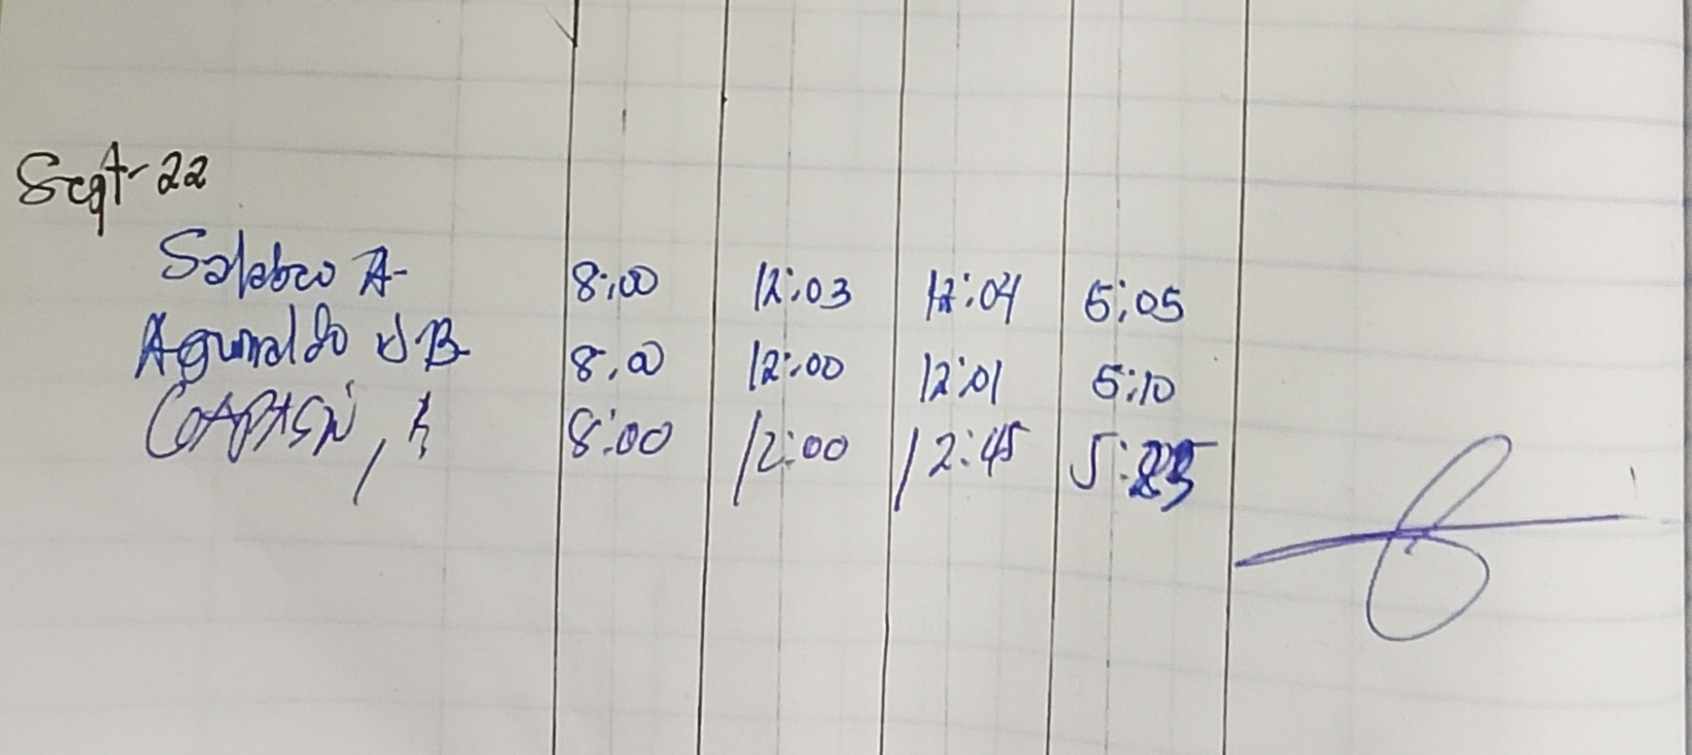 Sept-22
Salabao A- 8:00 12:03 12:04 5:05
Aguinaldo JB 8:00 12:00 12:01 5:10
8:00 12:00 12:45